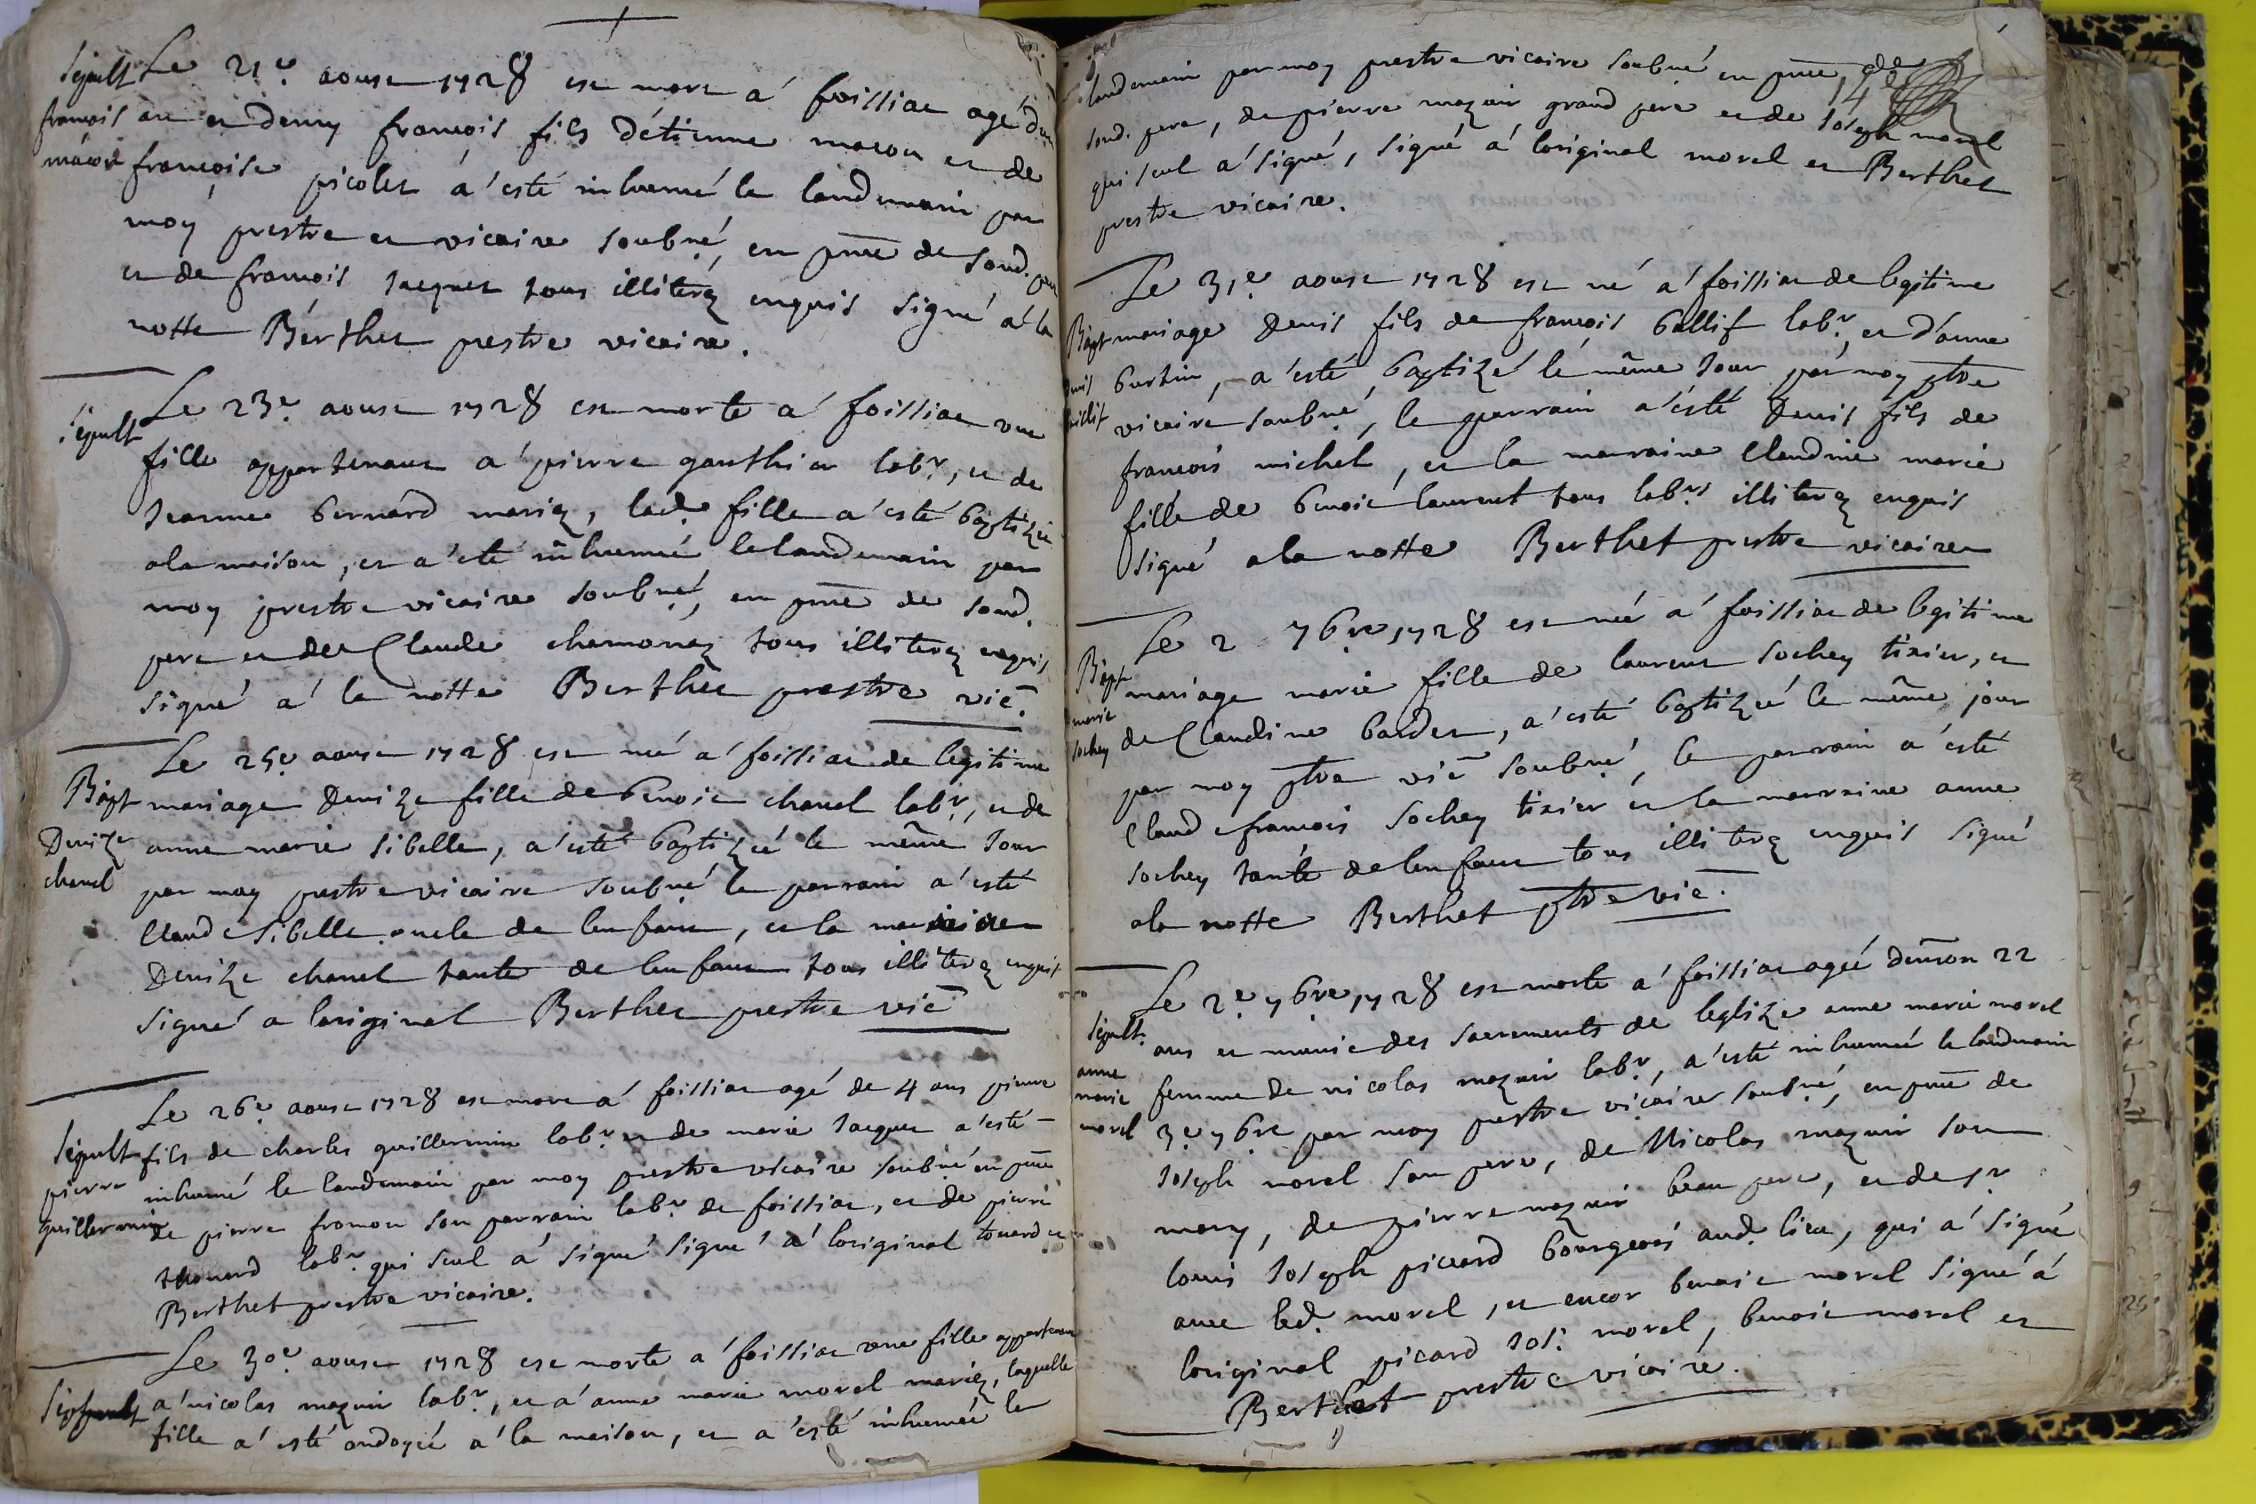 Sepult
françois
mácon
Le 21e. aoust 1728 est mort a' foissiat agé d'un
an et demy françois fils d'étienne macon et de
françoise picolet a' esté inhumé le landemain par
moy prestre et vicaire soubné, en pnce de sond. pere
et de françois jaques tous illiterez enquis signé a' la
notte Berthet prestre vicaire.
Sepult
Le 23e. aoust 1728 est morte a' foissiat une
fille appartenant a' pierre gauthier labr, et de
jeanne bernard mariez, lad. fille a' esté baptizée
a la maison, et a' été inhumée le landemain par
moy prestre vicaire soubné, en pnce de sond.
pere et de Claude chamonaz tous illiterez enquis
signé a' la notte Berthet prestre vic.
Bapt
Denize
chanel
Le 25e aoust 1728 est née a' foissiat de legitime
mariage Denize fille de benoit chanel labr, et de
anne marie sibelle, a' esté baptizée le même jour
par moy prestre vicaire soubné le parrain a' esté
Claude sibelle oncle de lenfant, et la marraine
Denize chanel tante de lenfant tous illiterez enquis
signé a loriginal Berthet prestre vic
Sepult
pierre
guillermin
Le 26e aoust 1728 est mort a' foissiat agé de 4 ans pierre
fils de charles guillermin labr. et de marie jaques a' esté
inhumé le landemain par moy prestre vicaire soubné en pnce
de pierre fromon son parrain labr de foissiat, et de pierre
thouard labr. qui seul a' signé signé a' loriginal touard et
Berthet prestre vicaire.
Sepult
Le 30e. aoust 1728 est morte a' foissiat une fille appartenant
a' nicolas mazuir labr, et a' anne marie morel mariez, laquelle
fille a' esté ondoyée a' la maison, et a' esté inhumée le
landemain par moy prestre vicaire soubné en pnce, de
sond. pere, de pierre mazuir grand pere et de joseph morel
qui seul a' signé, signé a' loriginal morel et Berthet
prestre vicaire.
Bapt
denis
Le 31e aoust 1728 est né a' foissiat de legitime
mariage Denis fils de françois baillif labr, et d'anne
burtin, a' esté baptizé le même jour par moy ptre
vicaire soubné, le parrain a' esté Denis fils de
françois michel, et la marraine Claudine marie
fille de benoit laurent tous labrs illiterez enquis
signé a la notte Berthet prestre vicaire
Bapt
marie
sochey
Le 2 7bre 1728 est née a' foissiat de legitime
mariage marie fille de laurent sochey tixier, et
de Claudine bardet, a' esté baptizée le même jour
par moy ptre vic soubné, le parrain a' esté
Claude françois sochey tixier et la marraine anne
sochey tante de lenfant tous illiterez enquis signé
a la notte Berthet ptre vic.
Sepult.
anne
marie
morel
Le 2e. 7bre 1728 est morte a' foissiat agée denviron 22
ans et munie des sacrements de leglize anne marie morel
femme de nicolas mazuir labr, a' esté inhumée le landemain
3e 7bre par moy prestre vicaire soubné, en pnce de
joseph morel son pere, de Nicolas mazuir son
mary, de pierre mazuir beau pere, et de sr
louis joseph picard bourgeois aud. lieu, qui a' signé
avec led. morel, et encor benoit morel signé a'
loriginal picard jos: morel, benoit morel et
Berthet prestre vicaire.